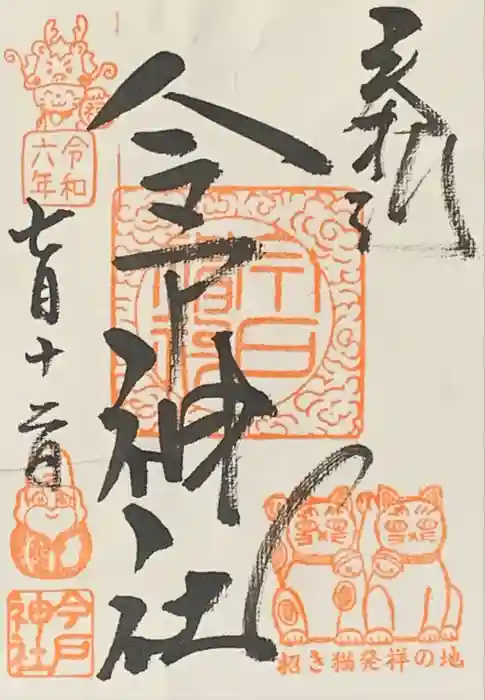 奉拝
今戸神社
令和
六年
七月十二日
今戸
神社
招き猫発祥の地